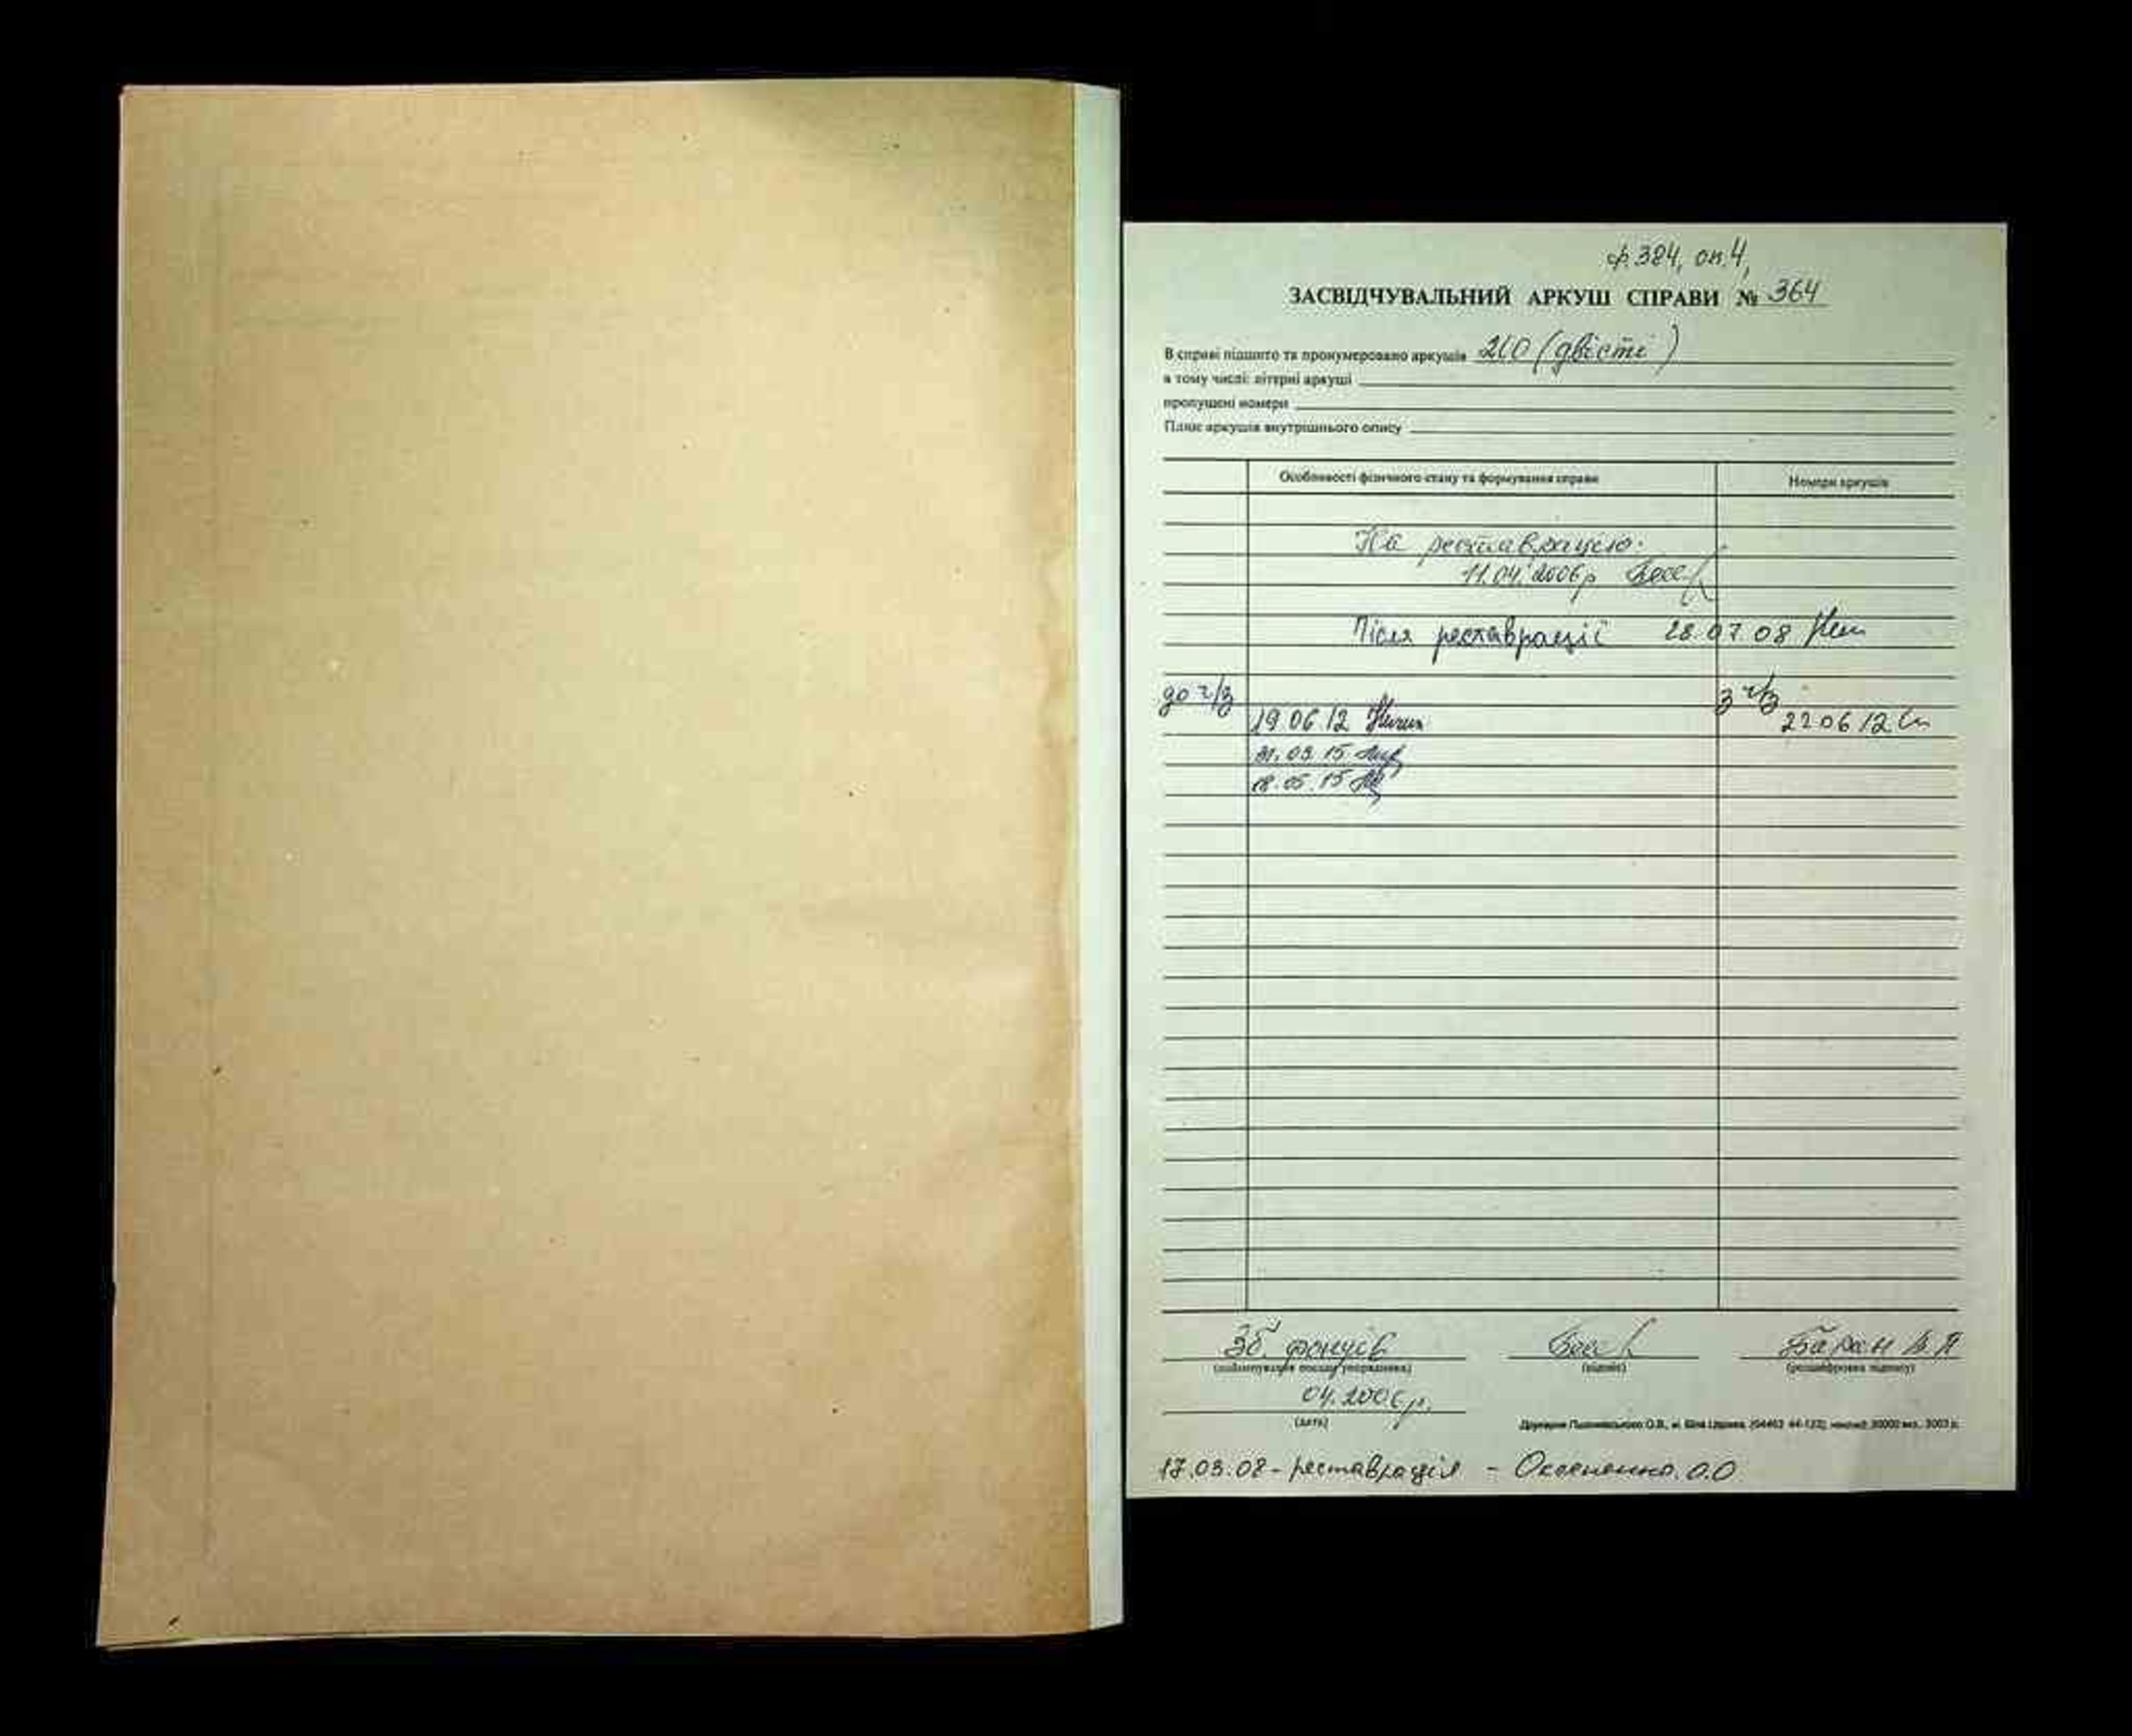 ф. 384, оп. 4,
ЗАСВІДЧУВАЛЬНИЙ АРКУШ СПРАВИ № 364
В справі підшито та пронумеровано аркушів 200 (двісті)
в тому числі: літерні аркуші
пропущені номери
Плюс аркушів внутрішнього опису
Особливості фізичного стану та формування справи Номери аркушів
На реставрацію.
11.04.2006р
Після реставрації 28.07.08
до ч/з з ч/з
19.06.12 22.06.12
31.03.15
18.05.15
Зб. фондів Баран В.Я
(найменування посади упорядника) (підпис) (розшифровка підпису)
04.2006р.
(дата)
17.03.08 - реставрація - О.О